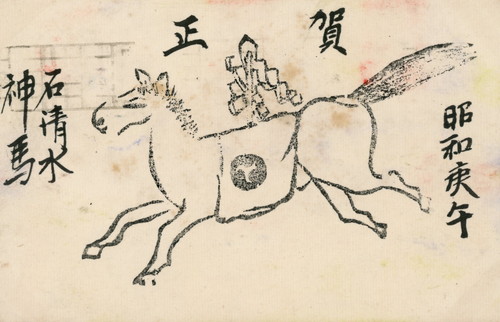 賀正
昭和庚午
石清水
神馬